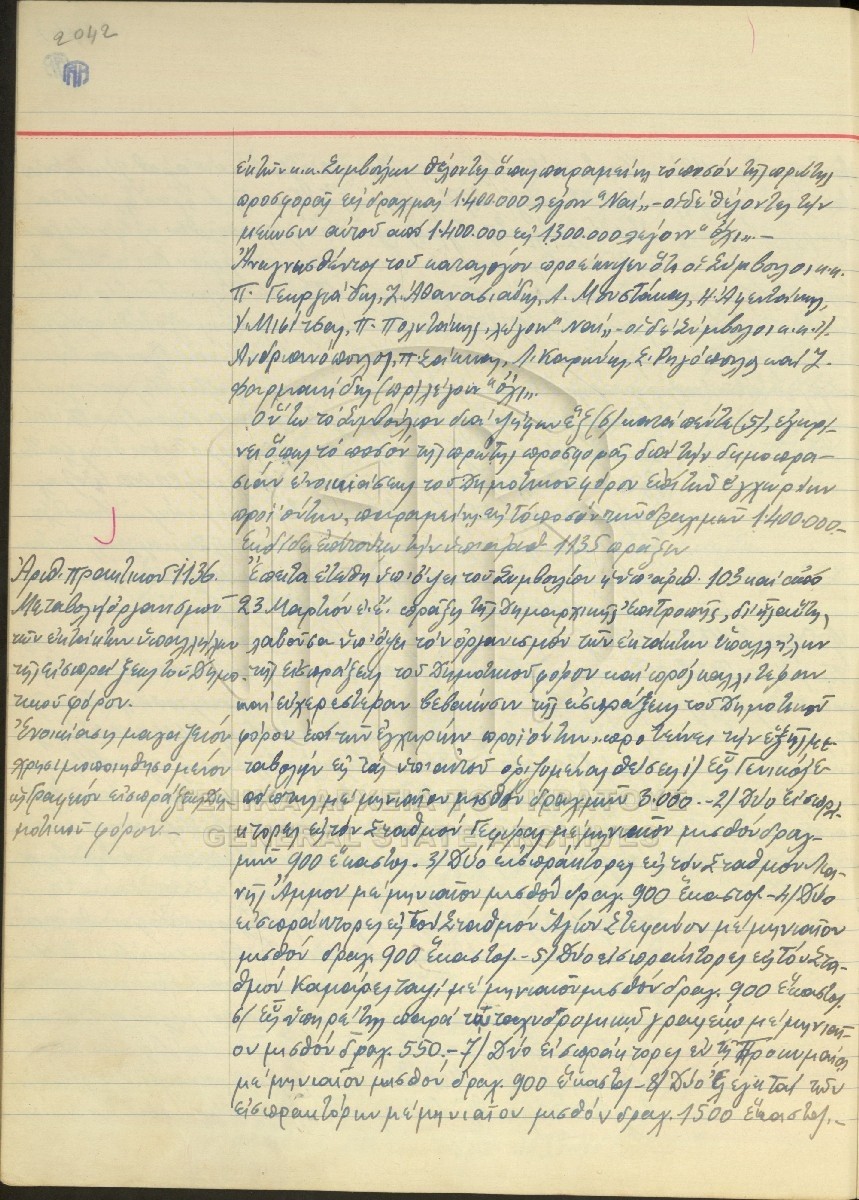 2042
ἐκ τῶν κ.κ. Συμβούλων θέλοντες ὅπως παραμείνῃ τὸ ποσὸν τῆς πρώτης
προσφορᾶς εἰς δραχμάς 1.400.000 λέγουν "Ναί„ – οἱ δὲ θέλοντες τὴν
μείωσιν αὐτοῦ ἀπό 1.400.000 εἰς 1.300.000 λέγουν "ὄχι„. –
Ἀναγνωσθέντος τοῦ καταλόγου προέκυψεν ὅτι οἱ Σύμβουλοι κ.κ.
Π. Γεωργιάδης, Ζ. Ἀθανασιάδης, Λ. Μουστάκας,
Π. Πολιτάκης, λέγουν "ναί„ – οἱ δὲ Σύμβουλοι κ.κ.
Ἀνδριανόπουλος, Λ. Καρκάνης, Σ. καὶ Ζ.
Φαρμακίδης (πρ) λέγουν "ὄχι„.
Οὕτω τὸ Συμβούλιον διὰ ψήφων ἕξ (6) κατὰ πέντε (5), ἐγκρί-
νει ὅπως τὸ ποσὸν τῆς πρώτης προσφορᾶς διὰ τὴν δημοπρα-
σίαν ἐνοικιάσεως τοῦ Δημοτικοῦ φόρου ἐπὶ τῶν ἐγχωρίων
προϊόντων, παραμείνῃ εἰς τὸ ποσὸν τῶν δραχμῶν 1.400.000.–
Ἐκδίδει ἐπὶ τούτῳ τὴν ὑπ' ἀριθ. 1135 πρᾶξιν
Ἀριθ. πρακτικοῦ 1136.
Μεταβολὴ ὀργανισμοῦ
τῶν ἐκτάκτων ὑπαλλήλων
τῆς εἰσπράξεως τοῦ Δημο-
τικοῦ φόρου.
Ἐνοικίασις μαγαζείου
χρησιμοποιηθησομένου
ὡς Γραφεῖον εἰσπράξεως Δη-
μοτικοῦ φόρου –
Ἔπειτα ἐτέθη ὑπ' ὄψει τοῦ Συμβουλίου ἡ ὑπ' ἀριθ. 103 καὶ ἀπό
23 Μαρτίου ἐ.ἔ. πρᾶξις τῆς Δημαρχιακῆς Ἐπιτροπῆς, δι' ἧς αὕτη,
λαβοῦσα ὑπ' ὄψει τὸν ὀργανισμὸν τῶν ἐκτάκτων ὑπαλλήλων
τῆς εἰσπράξεως τοῦ Δημοτικοῦ φόρου καὶ πρὸς καλλιτέραν
καὶ εὐχερεστέραν βεβαίωσιν τῆς εἰσπράξεως τοῦ Δημοτικοῦ
φόρου ἐπὶ τῶν ἐγχωρίων προϊόντων, προτείνει τὴν ἑξῆς με-
ταβολὴν εἰς τὰς ὑπ' αὐτοῦ ὁριζομένας θέσεις 1/ Εἷς Γενικὸς Ἐ-
πόπτης μὲ μηνιαῖον μισθὸν δραχμῶν 3.000.– 2/ Δύο εἰσπρά-
κτορες εἰς τὸν Σταθμὸν Γεφύρας μὲ μηνιαῖον μισθὸν δραχ-
μῶν 900 ἕκαστος. – 3/ Δύο εἰσπράκτορες εἰς τὸν Σταθμὸν Μα-
κρῆς Ἄμμου μὲ μηνιαῖον μισθὸν δραχ. 900 ἕκαστος – 4/ Δύο
εἰσπράκτορες εἰς τὸν Σταθμὸν Ἁγίου Στεφάνου μὲ μηνιαῖον
μισθὸν δραχ. 900 ἕκαστος. – 5/ Δύο εἰσπράκτορες εἰς τὸν Στα-
θμὸν Καμάρες μὲ μηνιαῖον μισθὸν δραχ. 900 ἕκαστος.
6/ Εἷς ὑπηρέτης παρὰ τῷ ταχυδρομικῷ γραφείῳ μὲ μηνιαῖ-
ον μισθὸν δραχ. 550. – 7/ Δύο εἰσπράκτορες ἐν τῇ Προκυμαίᾳ
μὲ μηνιαῖον μισθὸν δραχ. 900 ἕκαστος – 8/ Δύο Ἐλεγκταὶ τῶν
εἰσπρακτόρων μὲ μηνιαῖον μισθὸν δραχ. 1500 ἕκαστος. –
GENERAL STATE ARCHIVES